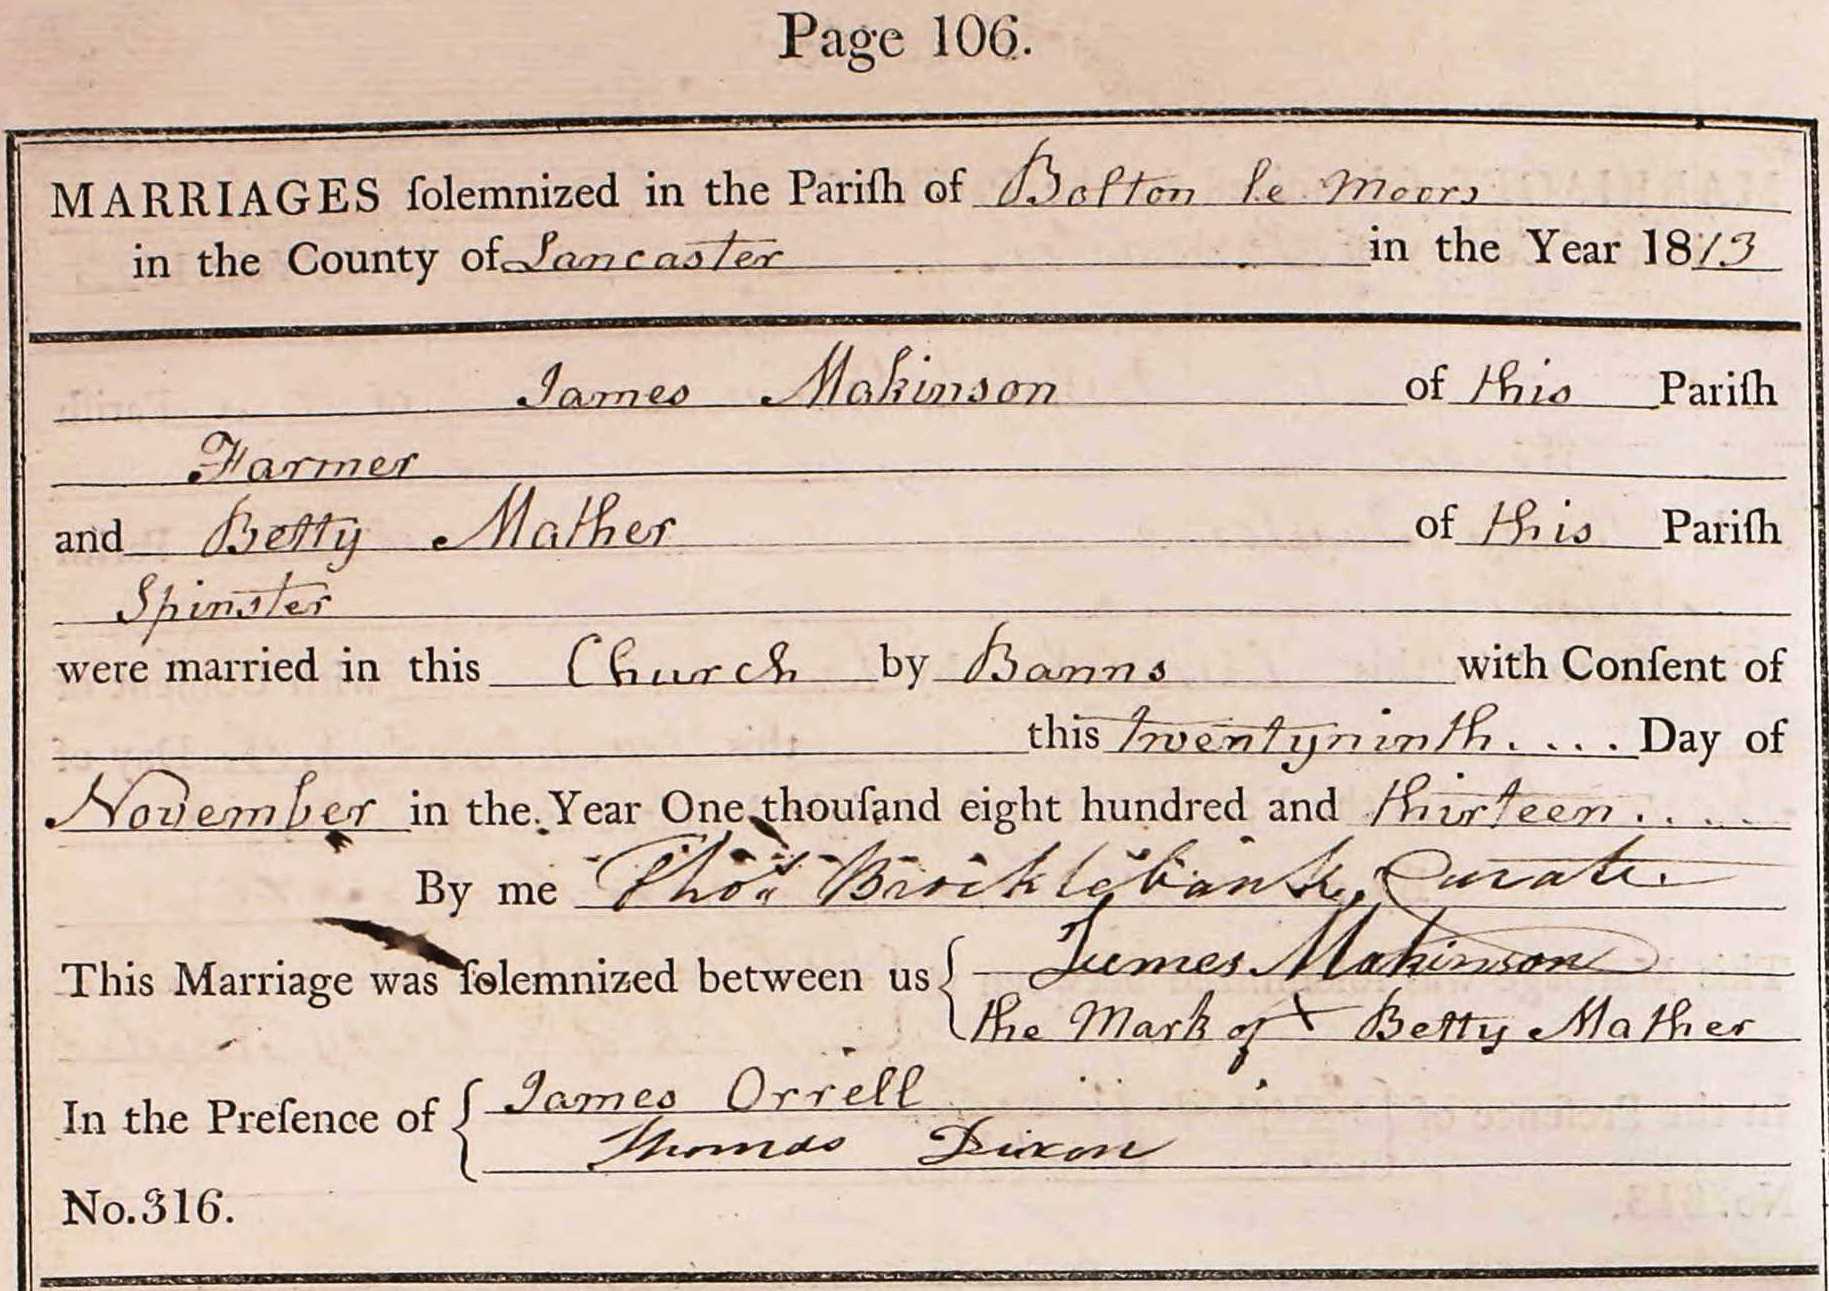 Page 106.
MARRIAGES ſolemnized in the Pariſh of Bolton le Moors
in the County of Lancaster in the Year 1813
James Makinson of this Pariſh
Farmer
and Betty Mather of this Pariſh
Spinster
were married in this Church by Banns with Conſent of
this twentyninth.... Day of
November in the Year One thouſand eight hundred and thirteen....
By me Thos Brocklebank, Curate.
This Marriage was ſolemnized between us { James Makinson
the Mark of X Betty Mather
In the Preſence of { James Orrell
Thomas Dixon
No.316.